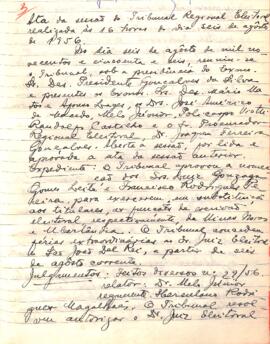 3
Ata da sessão do Tribunal Regional Eleitoral
realizada às 16 horas do dia seis de agosto
de 1956.
No dia seis de agosto de mil no-
vecentos e cincoenta e seis, reuniu-se
o Tribunal, sob a presidência do Exmo.
Sr. Des. Presidente Gonçalves da Silva
e presentes os Exmos. Srs. Des. Mário Ma-
tos e Afonso Lages, os Drs. José Américo
de Macedo, Melo Júnior,
e o Procurador
Regional Eleitoral, Dr. Joaquim Ferreira
Gonçalves. Aberta a sessão, foi lida e
aprovada a ata da sessão anterior.
Expediente: O Tribunal aprovou a nomea-
ção dos Drs. Luiz Gonzaga
Gomes Leite e Francisco Rodrigues
para exercerem, em substituição
aos titulares, as funções de
eleitoral respectivamente, de Minas Novas
e Uberlândia. O Tribunal concedeu
férias extraordinárias ao Dr. Juiz Eleitoral
de São João Del Rei, a partir de seis
de agosto corrente.
Julgamentos: Feitos Processo nº 29/56.
relator: Dr. Melo Júnior
requerente: Herculano Rodri-
gues Magalhães. O Tribunal resol-
veu autorizar o Dr. Juiz Eleitoral